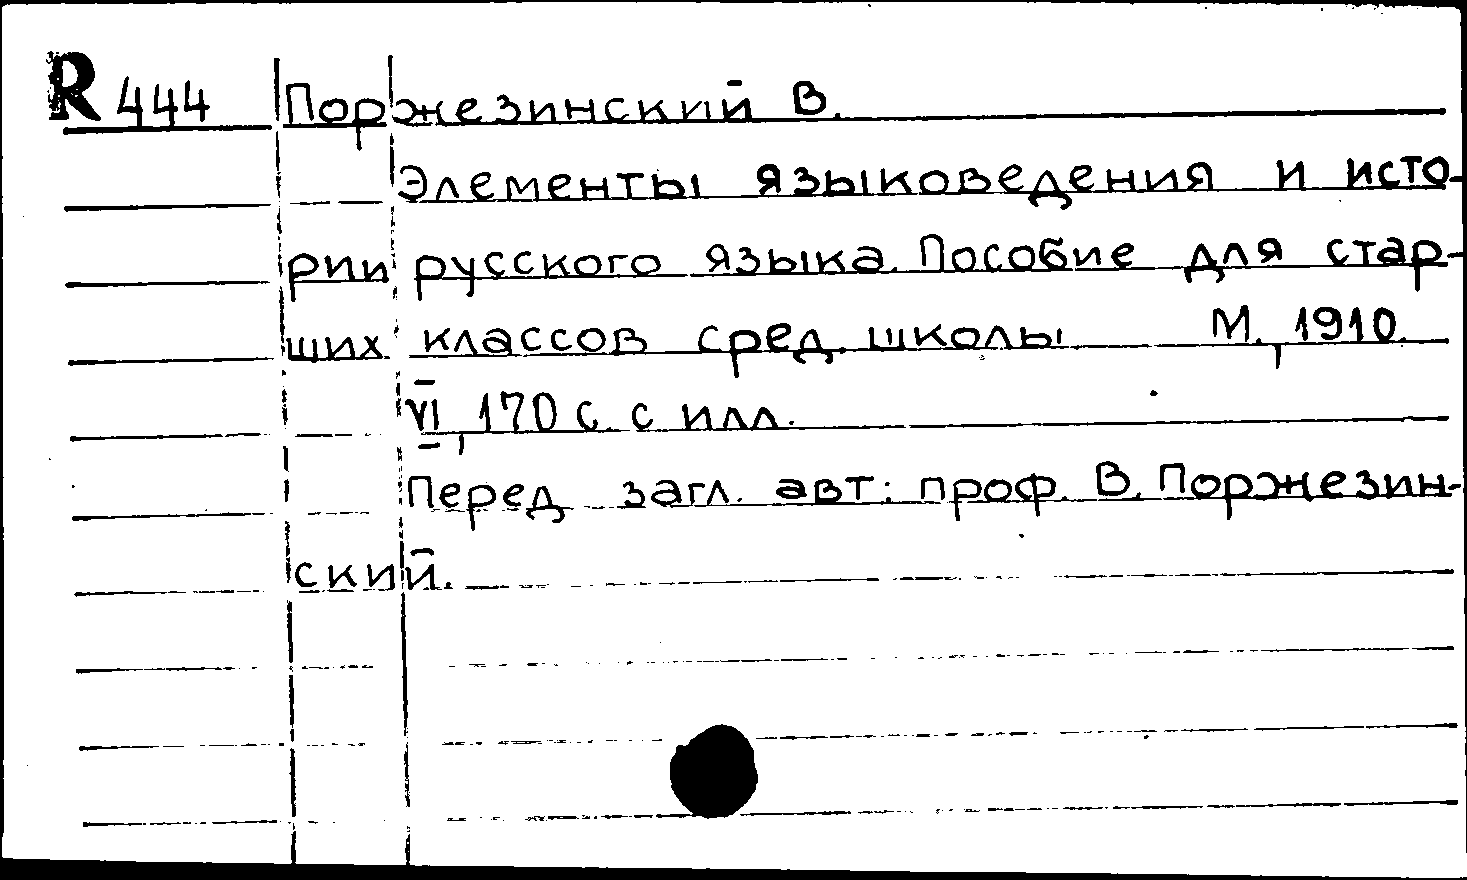 R 444 Поржезинский В.
Элементы языковедения и исто-
рии русского языка. Пособие для стар-
ших классов сред. школы М., 1910.
VI, 170 с. с илл.
Перед загл. авт: проф. В. Поржезин-
ский.